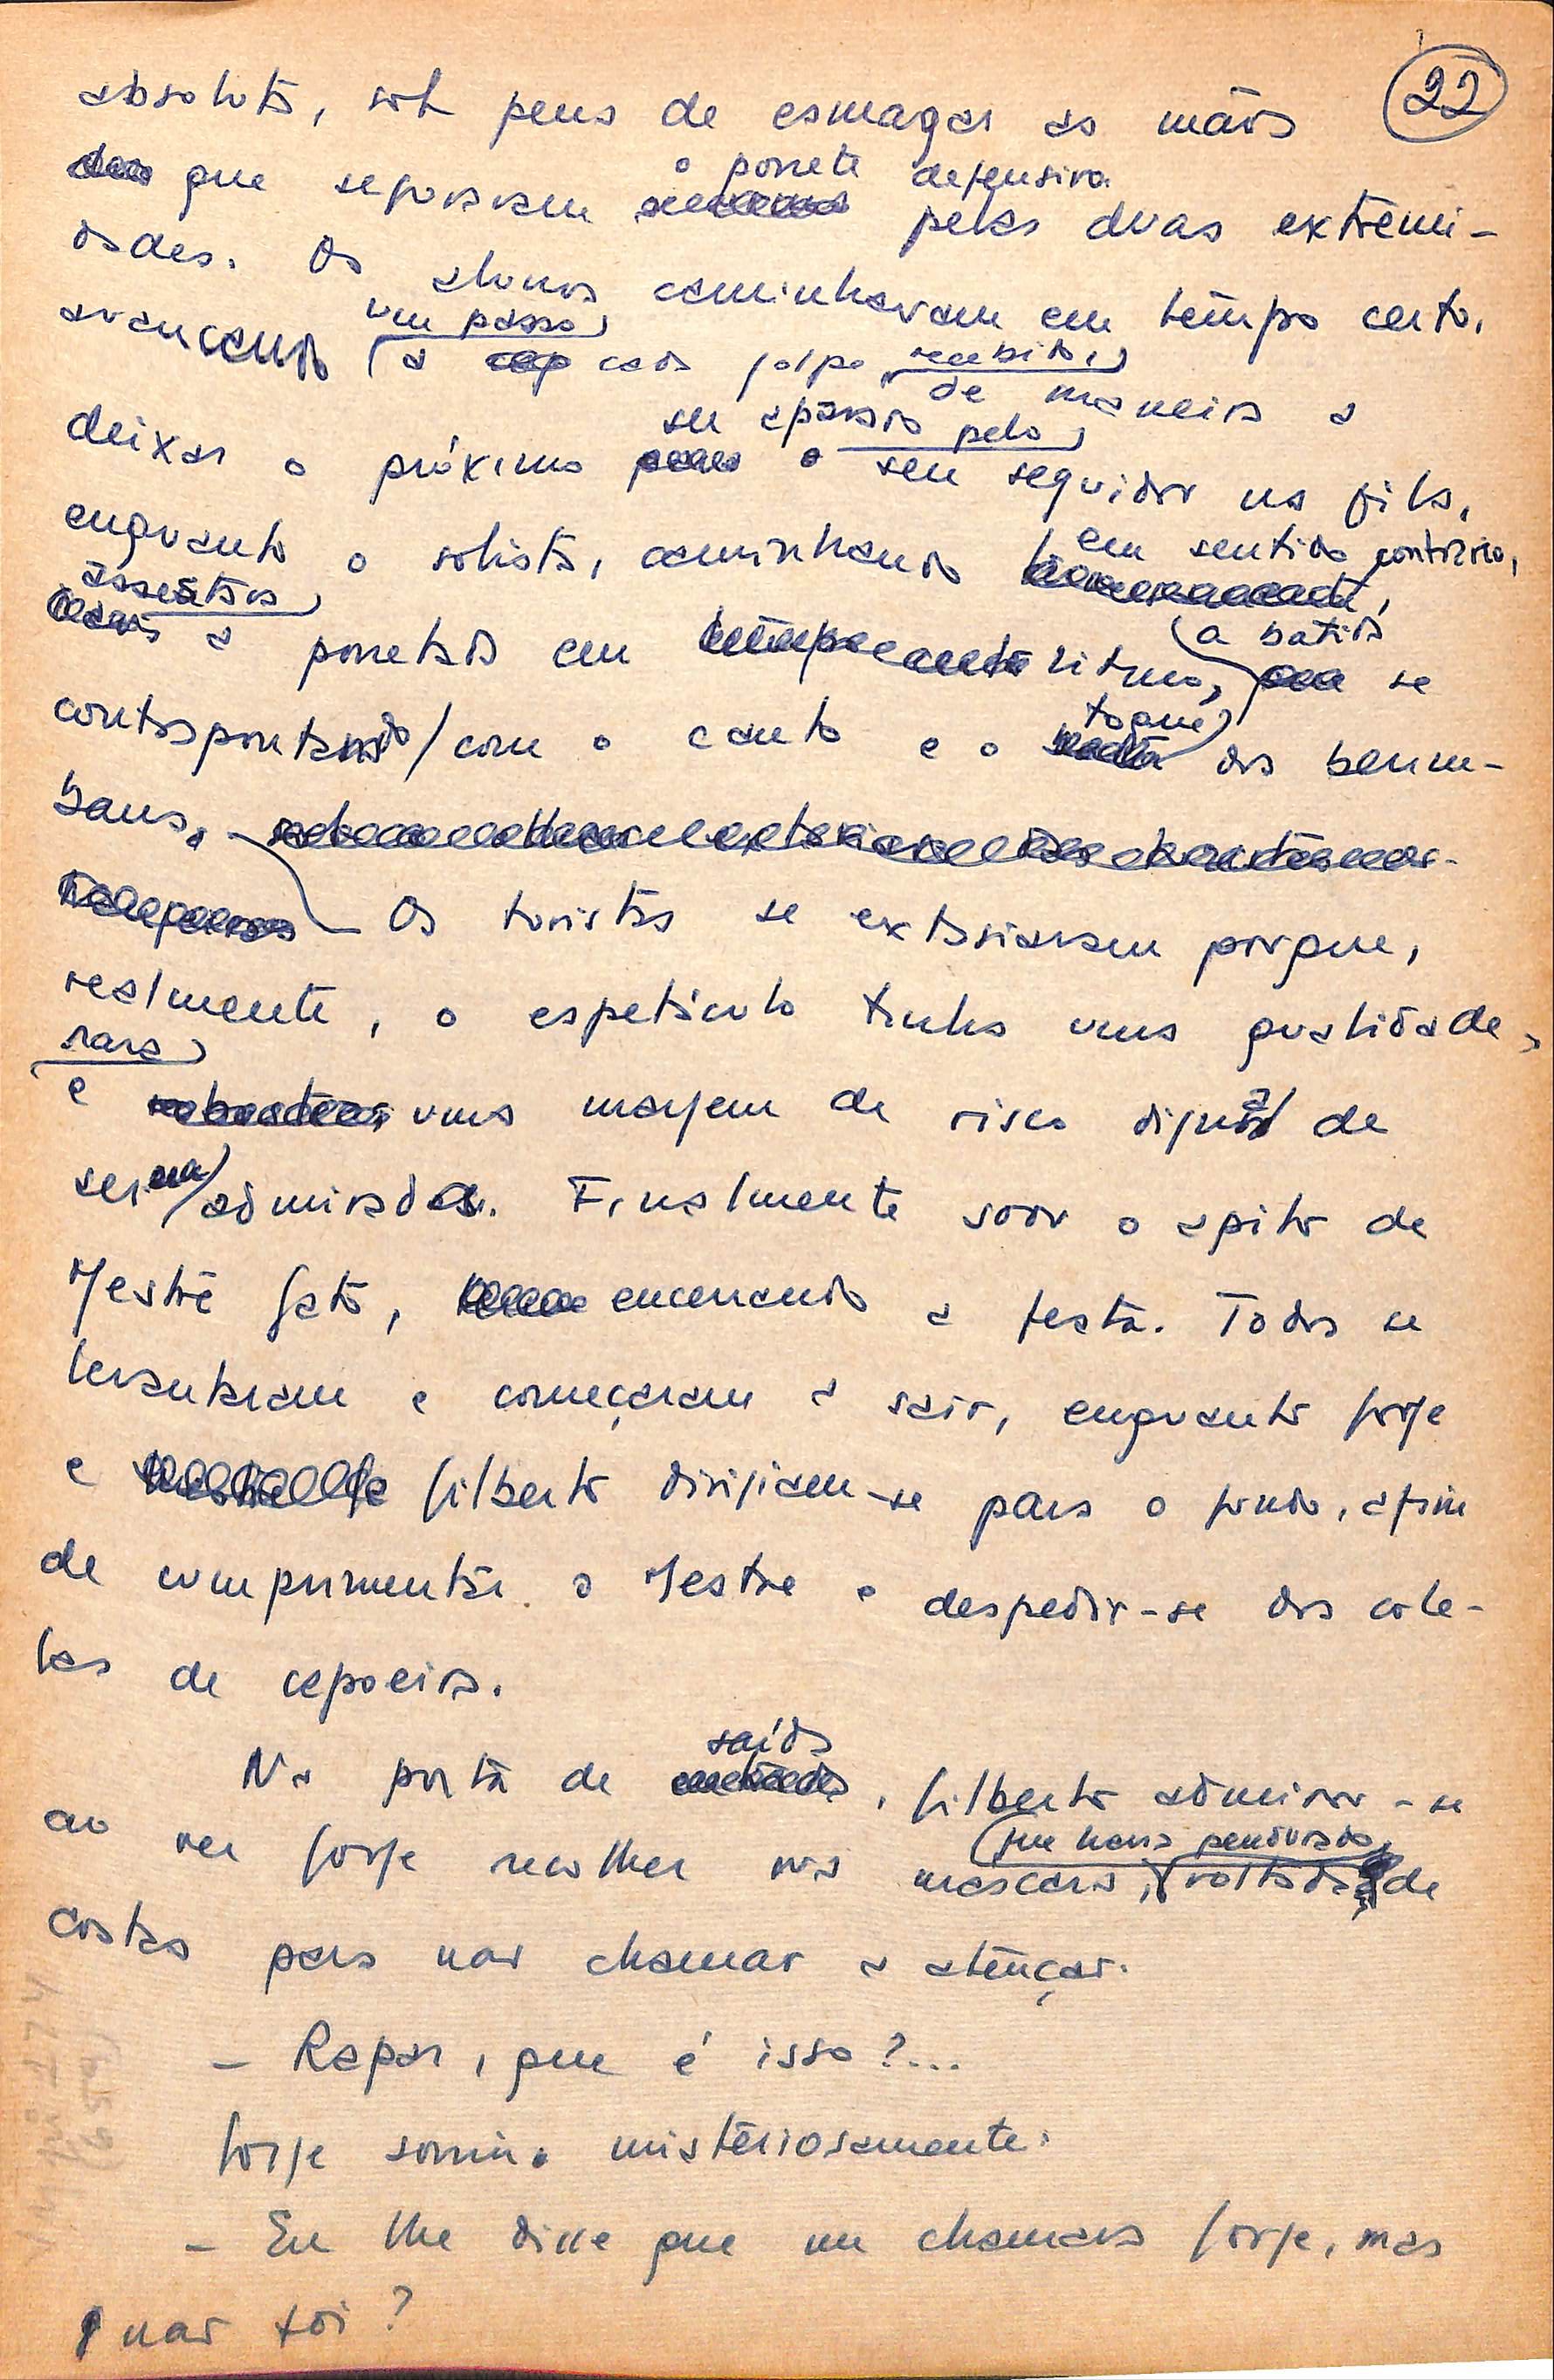 22
absoluta, sob pena de esmagar as mãos
que seguravam o porrete defensivo pelas duas extremi-
dades. Os alunos caminhavam em tempo certo,
avançando um passo a cada golpe recebido, de maneira a
deixar o próximo ser aparado pelo seu seguidor na fila,
enquanto o solista, caminhando em sentido contrário,
assestava a porretada em ritmo, a batida se
contrapontando com o canto e o toque dos berim-
baus. Os turistas se extasiavam porque,
realmente, o espetáculo tinha uma qualidade
rara e uma margem de risco digna de
serem admiradas. Finalmente soou o apito de
Mestre Gato, encerrando a festa. Todos se
levantaram e começaram a sair, enquanto Jorge
e Gilberto dirigiam-se para o fundo, afim
de cumprimentar o Mestre e despedir-se dos cole-
gas de capoeira.
Na porta de saída, Gilberto admirou-se
ao ver Jorge recolher uma máscara, que havia pendurado, voltada de
costas para não chamar a atenção.
- Rapaz, que é isso?...
Jorge sorriu misteriosamente:
- Eu lhe disse que me chamava Jorge, mas
não foi?